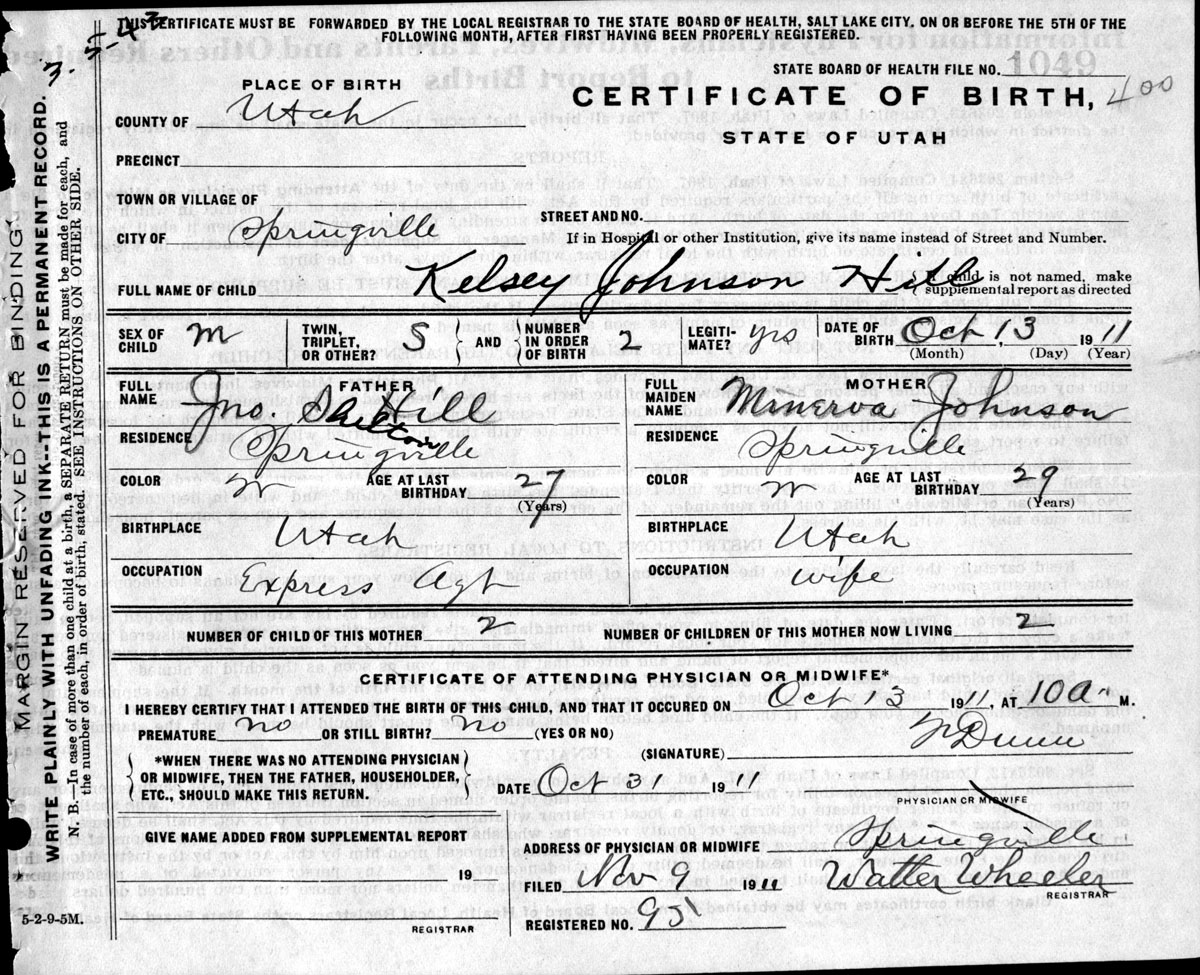 THIS CERTIFICATE MUST BE FORWARDED BY THE LOCAL REGISTRAR TO THE STATE BOARD OF HEALTH, SALT LAKE CITY, ON OR BEFORE THE 5TH OF THE
FOLLOWING MONTH, AFTER FIRST HAVING BEEN PROPERLY REGISTERED.
STATE BOARD OF HEALTH FILE NO. 1049
400
PLACE OF BIRTH
CERTIFICATE OF BIRTH,
COUNTY OF Utah
STATE OF UTAH
PRECINCT
TOWN OR VILLAGE OF
STREET AND NO.
CITY OF Springville
If in Hospital or other Institution, give its name instead of Street and Number.
FULL NAME OF CHILD Kelsey Johnson Hill
If child is not named, make
supplemental report as directed
SEX OF CHILD M TWIN, TRIPLET, OR OTHER? S AND NUMBER IN ORDER OF BIRTH 2 LEGITIMATE? yes DATE OF BIRTH Oct 13 1911
(Month) (Day) (Year)
FULL NAME FATHER
Jno.
RESIDENCE Springville
COLOR W AGE AT LAST BIRTHDAY 27
(Years)
BIRTHPLACE Utah
OCCUPATION Express Agt
FULL MAIDEN NAME MOTHER
Minerva Johnson
RESIDENCE Springville
COLOR W AGE AT LAST BIRTHDAY 29
(Years)
BIRTHPLACE Utah
OCCUPATION wife
NUMBER OF CHILD OF THIS MOTHER 2 NUMBER OF CHILDREN OF THIS MOTHER NOW LIVING 2
CERTIFICATE OF ATTENDING PHYSICIAN OR MIDWIFE*
I HEREBY CERTIFY THAT I ATTENDED THE BIRTH OF THIS CHILD, AND THAT IT OCCURED ON Oct 13 1911, AT 10 a M.
PREMATURE no OR STILL BIRTH? no (YES OR NO)
(SIGNATURE) Dunn
*WHEN THERE WAS NO ATTENDING PHYSICIAN
OR MIDWIFE, THEN THE FATHER, HOUSEHOLDER,
ETC., SHOULD MAKE THIS RETURN.
DATE Oct 31 1911
PHYSICIAN OR MIDWIFE
GIVE NAME ADDED FROM SUPPLEMENTAL REPORT
19
REGISTRAR
ADDRESS OF PHYSICIAN OR MIDWIFE Springville
FILED Nov 9 1911 Walter Wheeler
REGISTRAR
REGISTERED NO. 95
MARGIN RESERVED FOR BINDING.
WRITE PLAINLY WITH UNFADING INK--THIS IS A PERMANENT RECORD.
N. B.—In case of more than one child at a birth, a SEPARATE RETURN must be made for each, and
the number of each, in order of birth, stated. SEE INSTRUCTIONS ON OTHER SIDE.
5-2-9-5M.